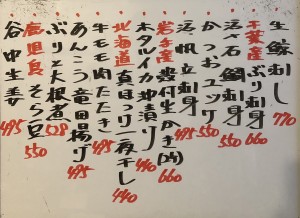 生鯨刺し 770
千葉産 ぶり刺身 660
活〆石鯛刺身 550
かつおユッケ 550
活帆立刺身 495
岩手産 殻付生かき(2ヶ) 660
ホタルイカ沖漬け 440
北海道 真ほっけ一夜干し 440
牛モモ肉たたき 495
あんこう竜田揚げ 495
ぶりと大根煮 528
鹿児島 そら豆 550
谷中生姜 495